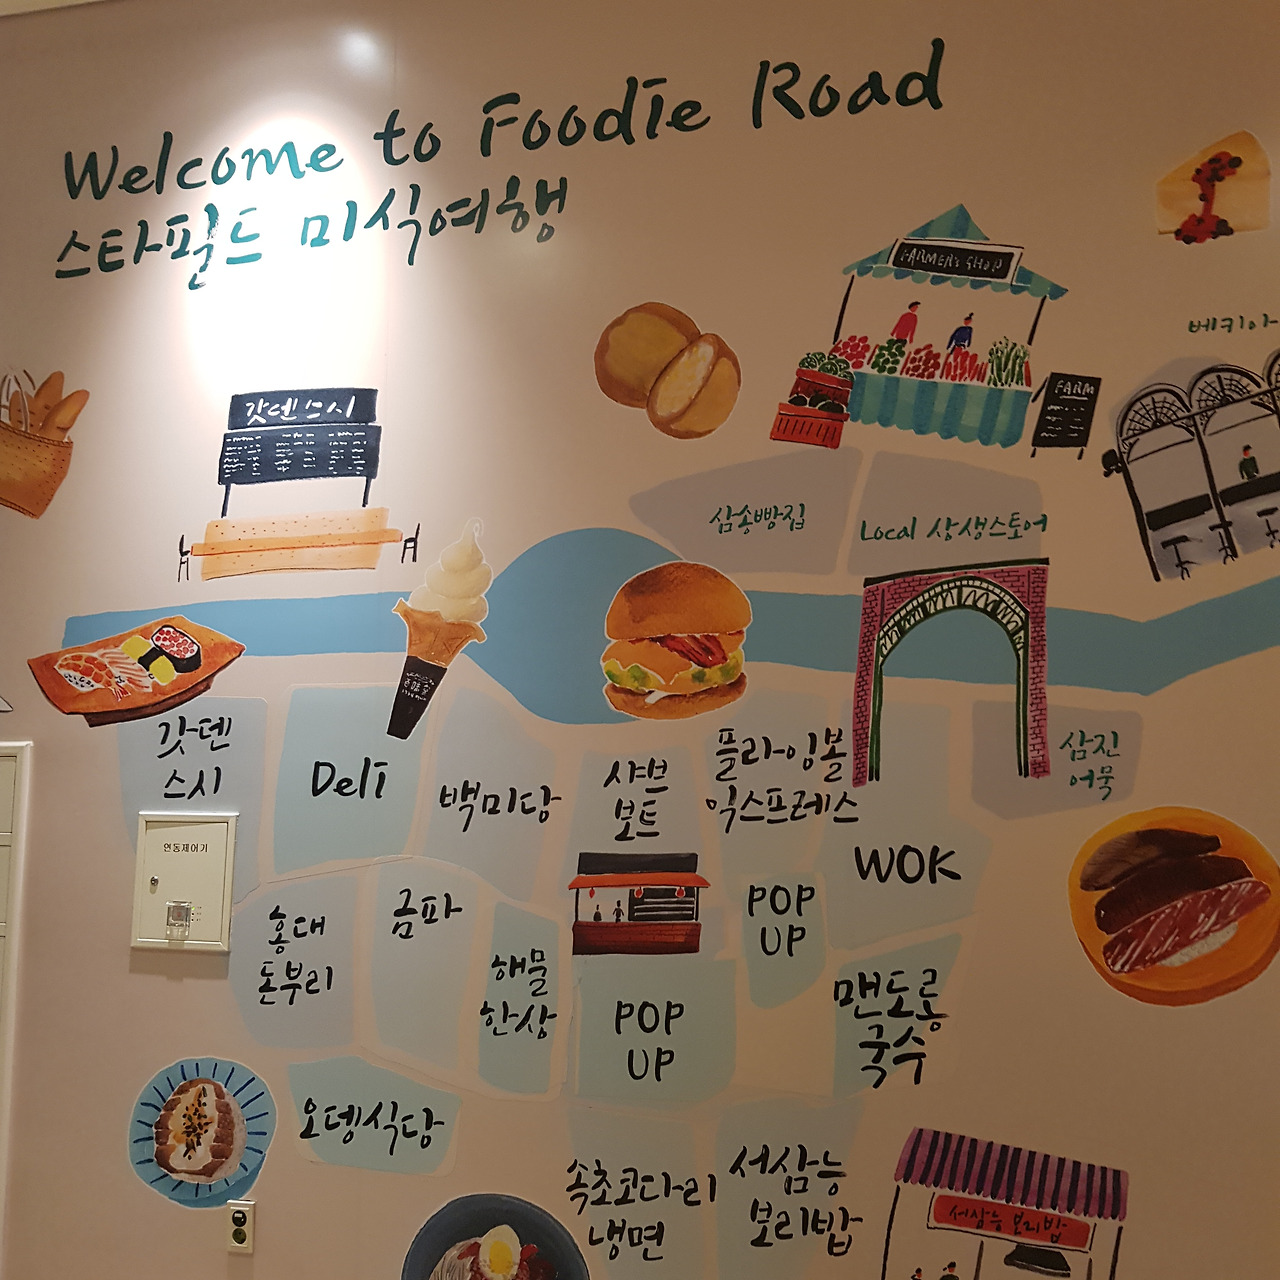 Welcome to Foodie Road
스타필드 미식여행
FARMER's SHOP
베키아
갓덴스시
FARM
삼송빵집
Local 상생스토어
갓덴
스시
Deli
백미당
샤브
보트
플라잉볼
익스프레스
삼진
어묵
연동제어기
WOK
홍대
돈부리
금파
POP
UP
해물
한상
POP
UP
맨도롱
국수
오뎅식당
속초코다리
냉면
서삼능
보리밥
서삼능 보리밥